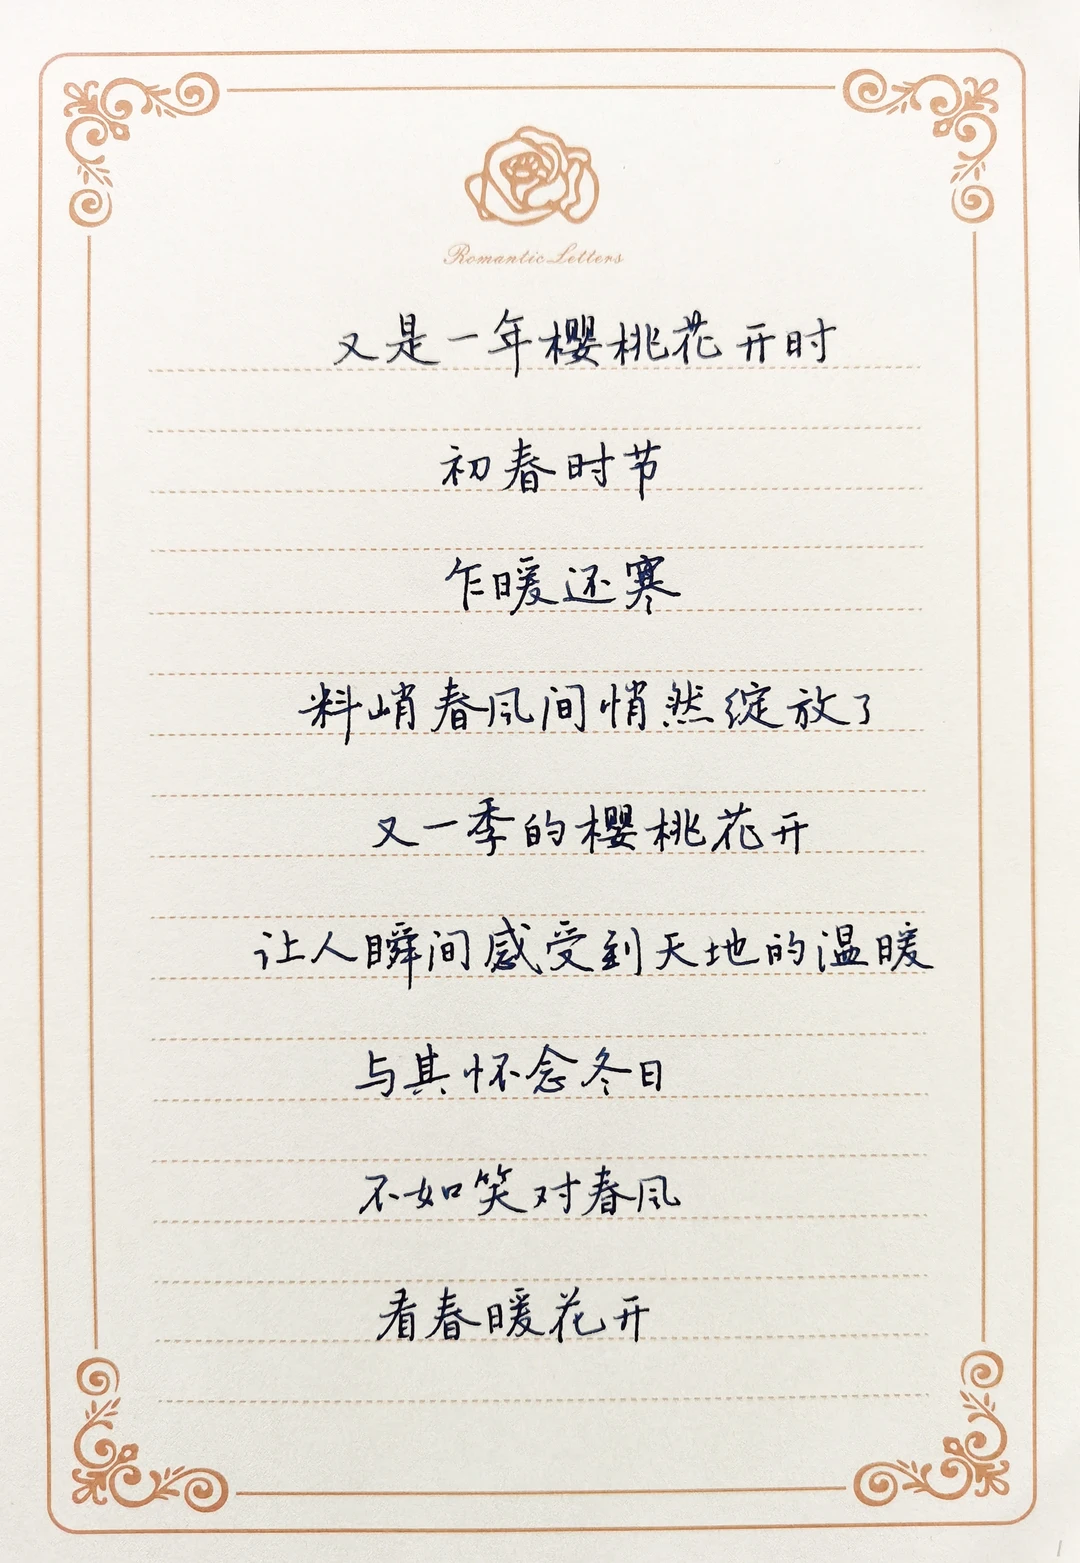 Romantic Letters
又是一年樱桃花开时
初春时节
乍暖还寒
料峭春风间悄然绽放了
又一季的樱桃花开
让人瞬间感受到天地的温暖
与其怀念冬日
不如笑对春风
看春暖花开